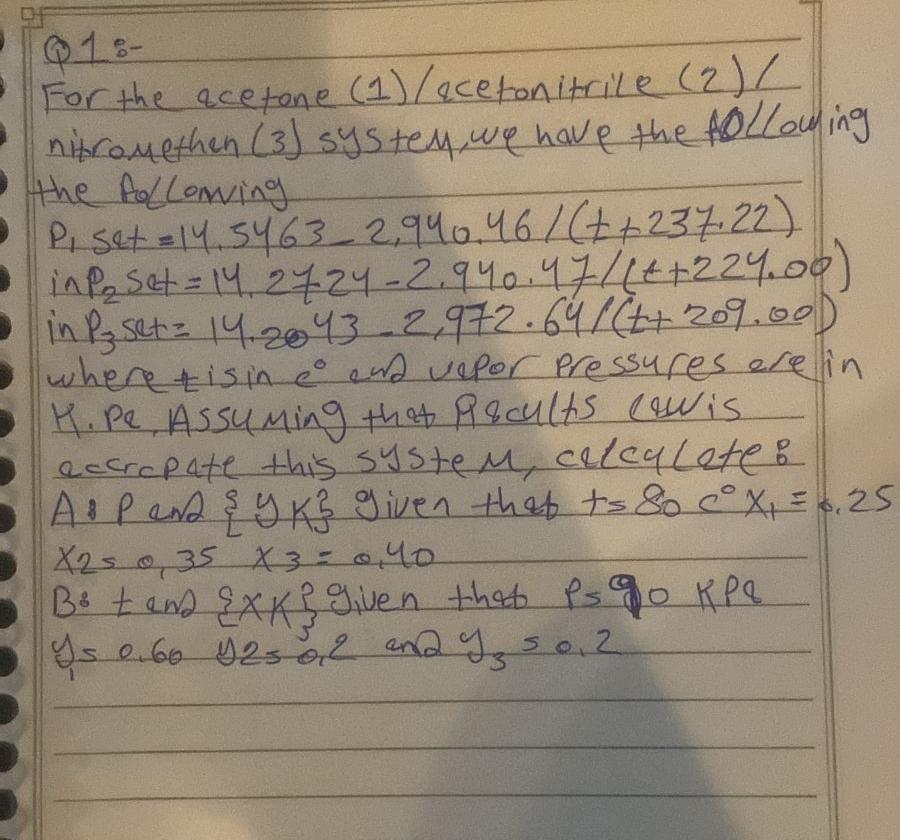 Q1:-
For the acetone (1)/acetonitrile (2)/
nitromethen (3) system, we have the following
the following
P₁ sat = 14.5463 - 2,940.46 / (t + 237.22)
inP₂ sat = 14.2724 - 2.940.47 / (t + 224.00)
inP₃ sat = 14.2043 - 2,972.64 / (t + 209.00)
where t is in c° and vapor pressures are in
K.Pa, Assuming that Raoults law is
accrcpate this system, calculate:
A: P and {yK} given that t = 80 c° X₁ = 0.25
X2 = 0,35 X3 = 0,40
B: t and {XK} given that P = 90 KPa
y₁ = 0.60 y2 = 0,2 and y₃ = 0.2